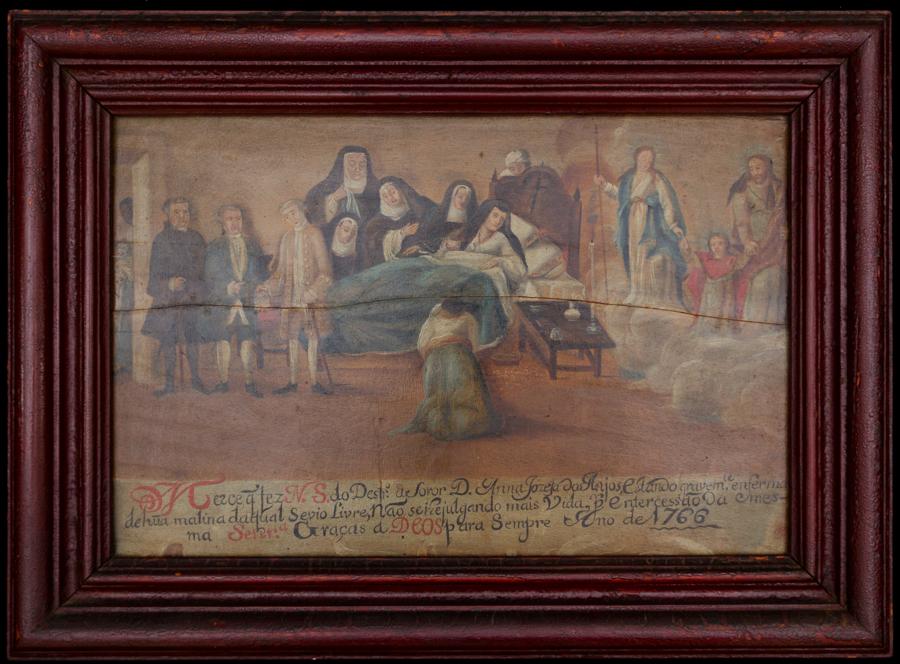 Merce q̃ fez N. S. do Dest.º de Soror D. Anna Jozefa do Anjos, Estando gravem.te enferma
de hua malina da qual Sevio Livre, Não se lhejulgando mais Vida, P. entercessão Da mes-
ma Senhr.ª Graças a DEOS para Sempre Ano de 1766